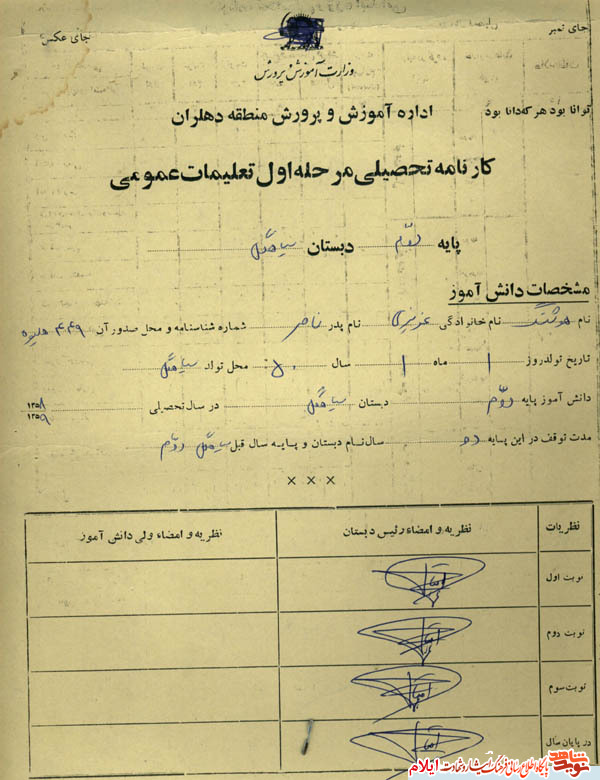 جای تمبر
جای عکس
وزارت آموزش و پرورش
توانا بود هر که دانا بود
اداره آموزش و پرورش منطقه دهلران
کارنامه تحصیلی مرحله اول تعلیمات عمومی
پایه دوم دبستان سیاه گل
مشخصات دانش آموز
نام هوشنگ نام خانوادگی عزیزی نام پدر ناصر شماره شناسنامه و محل صدور آن ۴۴۹
تاریخ تولد روز ۱ ماه ۱ سال ۵۰ محل تولد سیاه گل
دانش آموز پایه دوم دبستان سیاه گل در سال تحصیلی ۱۳۵۸ ۱۳۵۹
مدت توقف در این پایه سال نام دبستان و پایه سال قبل سیاه گل دوم
× × ×
نظریات نظریه و امضاء رئیس دبستان نظریه و امضاء ولی دانش آموز
نوبت اول
نوبت دوم
نوبت سوم
در پایان سال
نوید شاهد ایلام